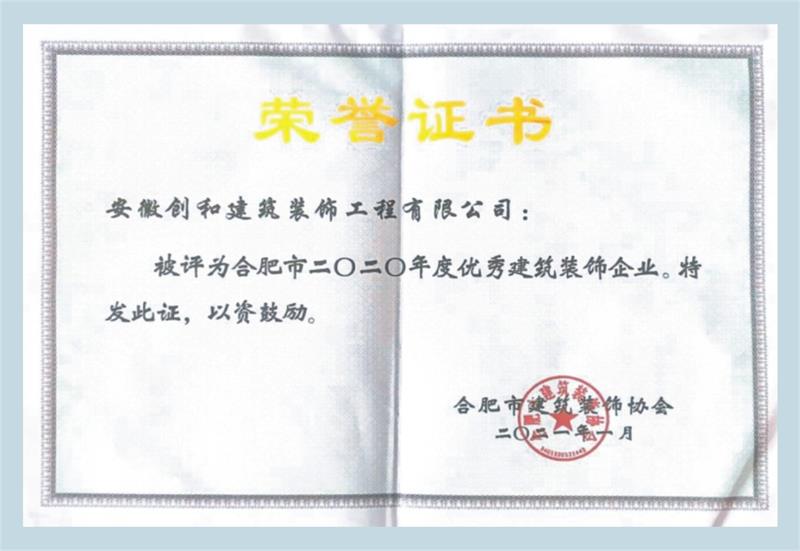 荣誉证书
安徽创和建筑装饰工程有限公司：
被评为合肥市二〇二〇年度优秀建筑装饰企业。特
发此证，以资鼓励。
合肥市建筑装饰协会
二〇二一年一月
合肥市建筑装饰协会